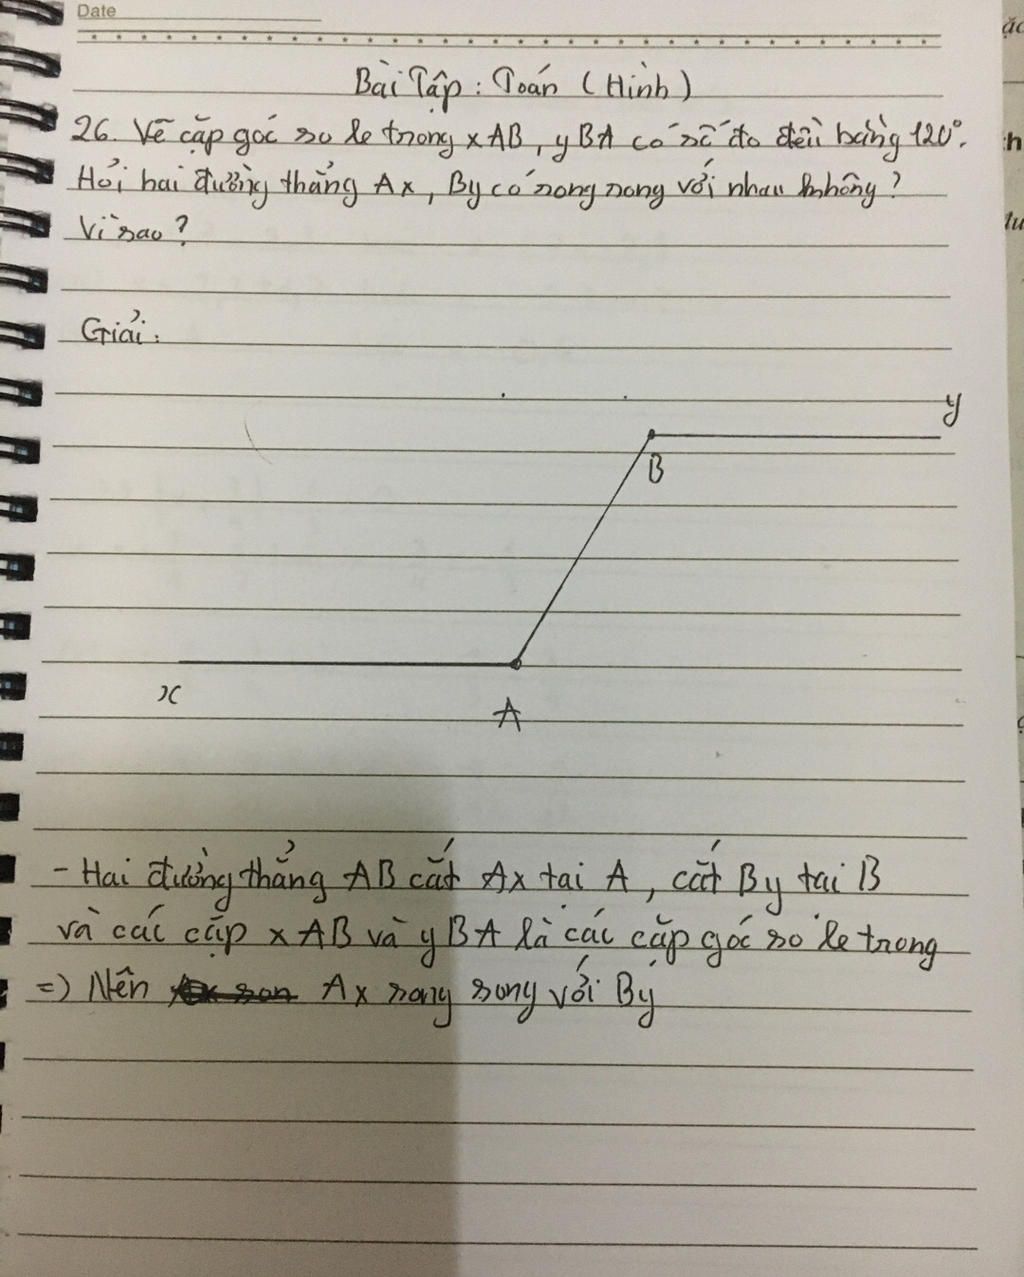 Date
Bài Tập: Toán (Hình)
26. Vẽ cặp góc so le trong xAB, yBA có số đo đều bằng 120°.
Hỏi hai đường thẳng Ax, By có song song với nhau không?
Vì sao?
Giải:
y
B
x
A
- Hai đường thẳng AB cắt Ax tại A, cắt By tại B
và các cặp xAB và yBA là các cặp góc so le trong
=) Nên Ax song song với By